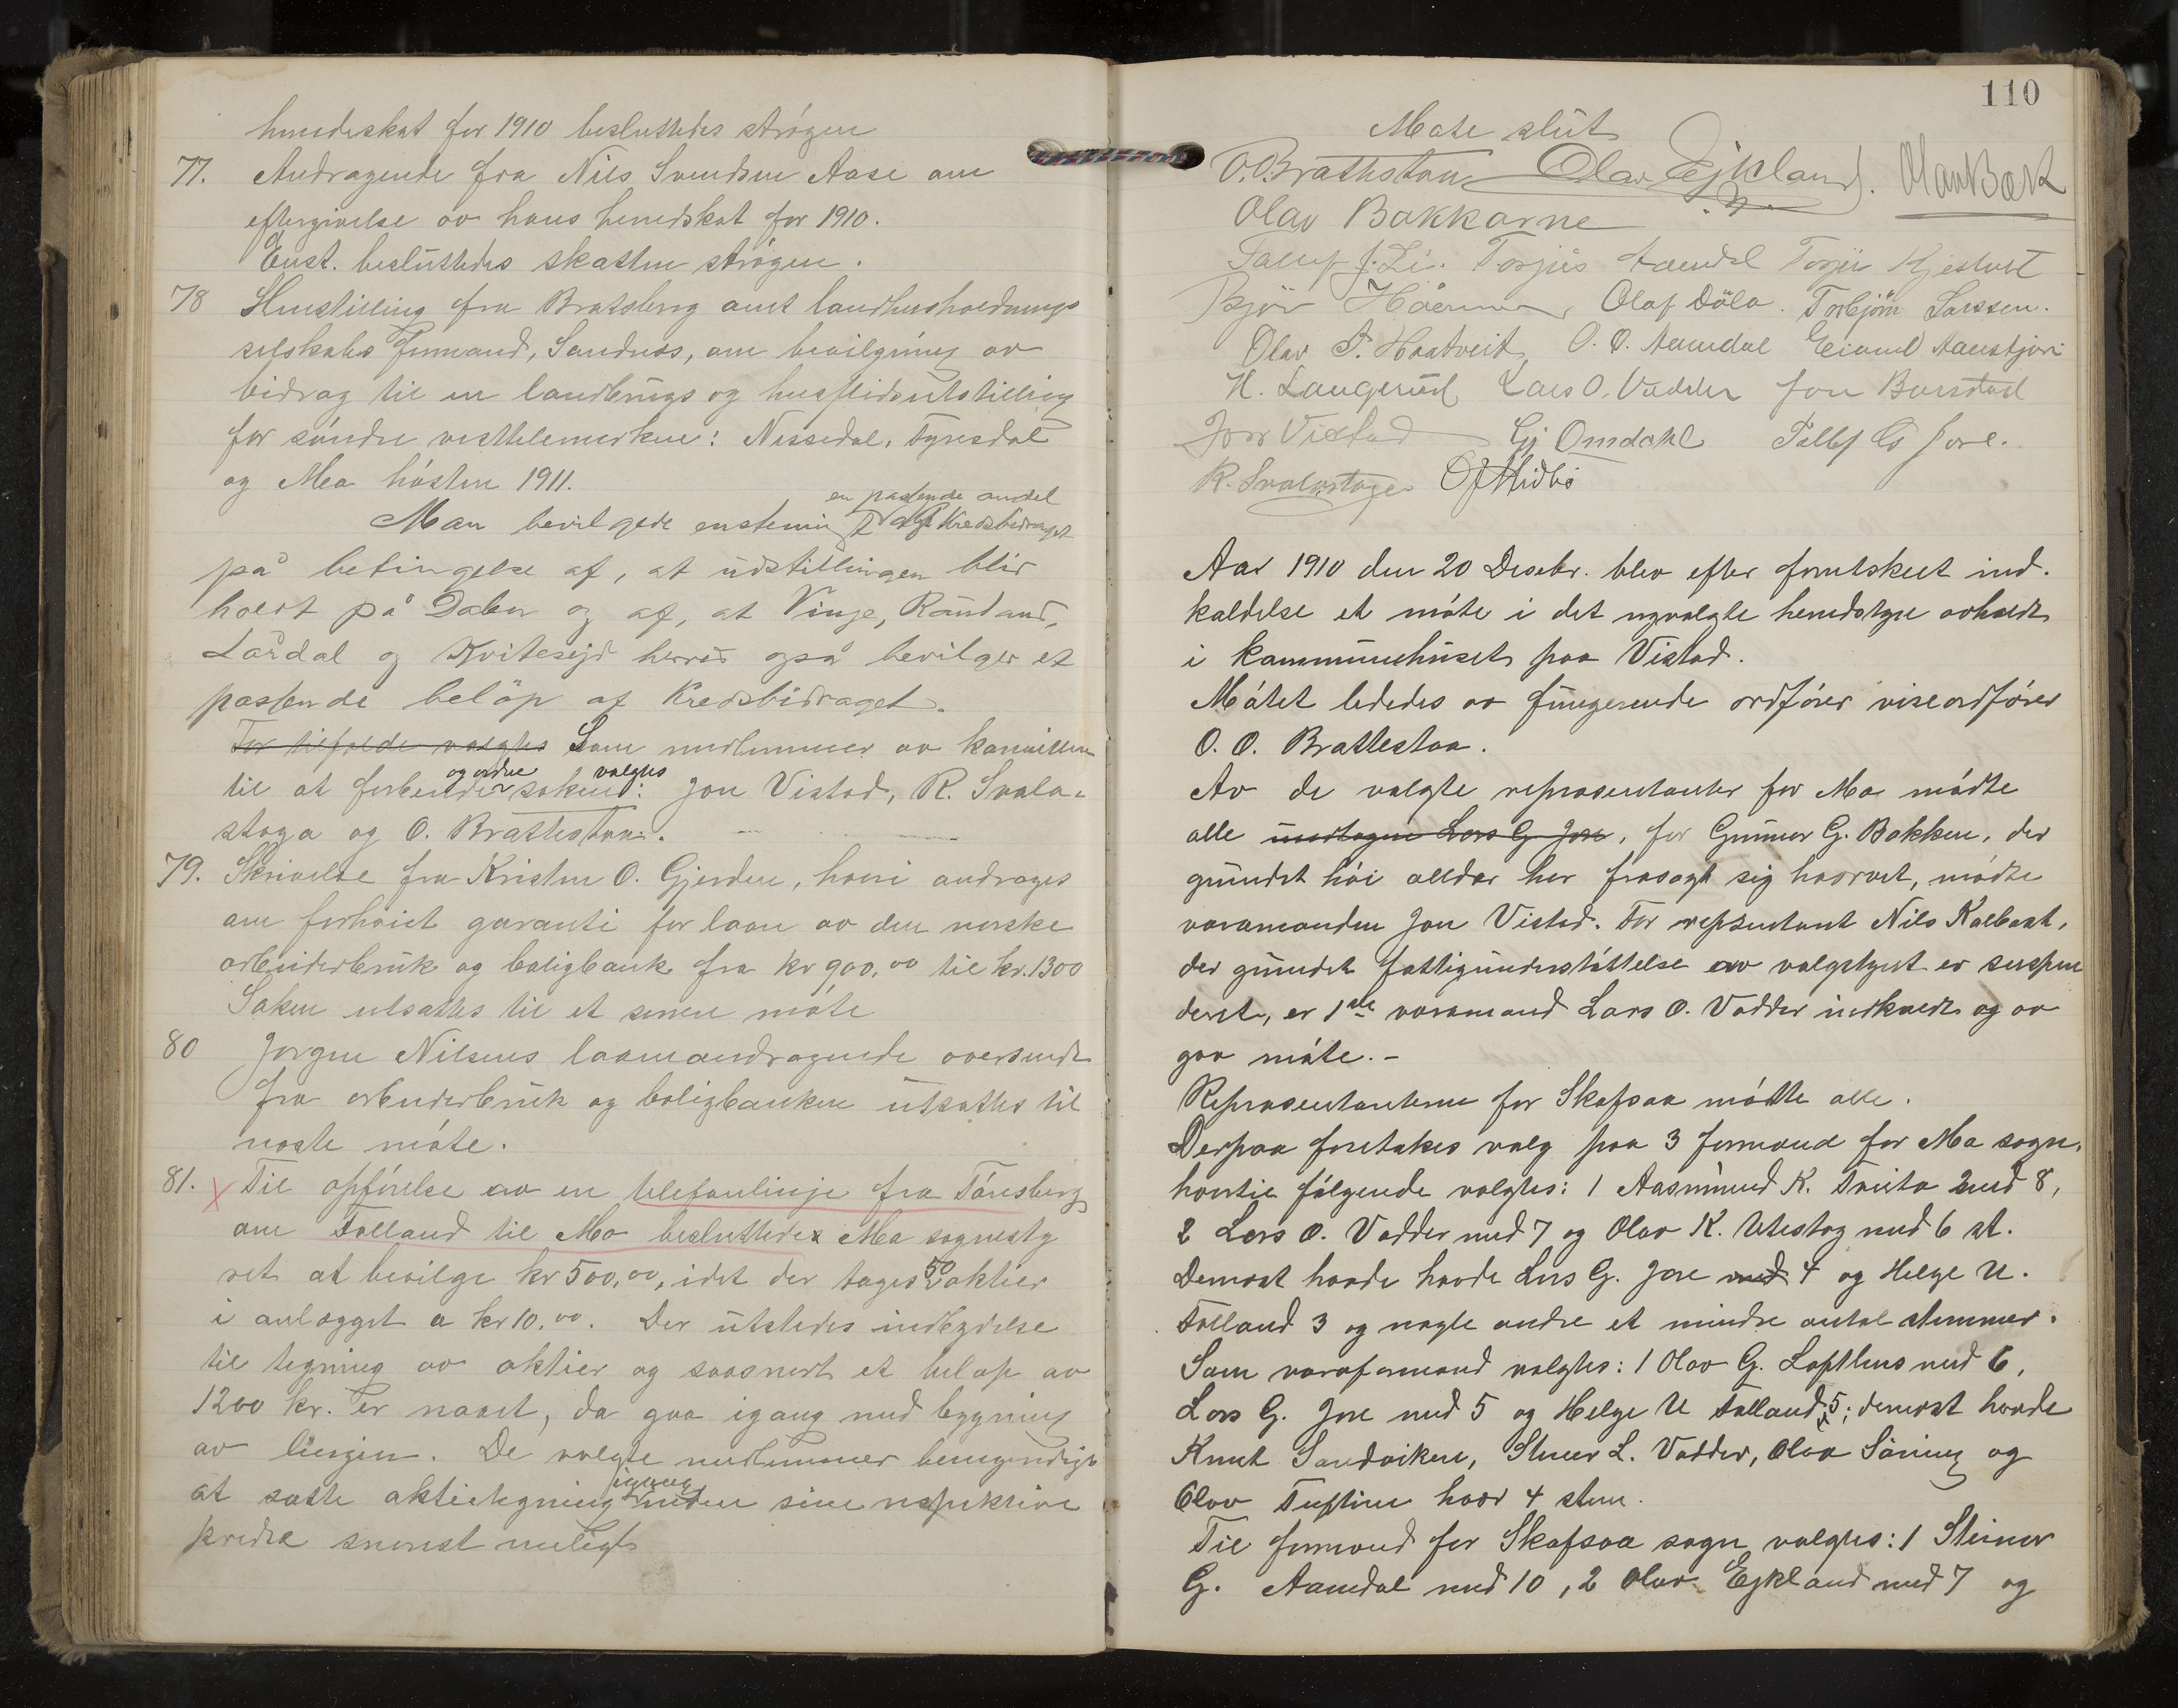 herredsskat for 1910 besluttedes strøgen
77. Andragende fra Nils Svendsen Aase om
eftergivelse av hans herredskat for 1910.
Enst. besluttedes skatten strøgen.
78 Henstilling fra Bratsberg amt landhusholdnings
selskabs formand, Sandnæs, om bevilgning av
bidrag til en landbrugs og husflidsutstilling
for søndre vesttelemarken: Nissedal, Fyresdal
og Mo høsten 1911.
en passende andel
Man bevilgede enstemig af Kredsbidraget
på betingelse af, at udstillingen blir
holdt på Dalen og af, at Vinje, Rauland,
Lårdal og Kvitesejd herred også bevilger et
passende beløp af Kredsbidraget.
For tilfælde valgtes Som medlemmer av komiteen
og ordne valgtes
til at forberede saken: Jon Vistad, R. Svala-
stoga og O. Brattestaa.
79. Skrivelse fra Kristen O. Gjerden, hvori andrages
om forhøiet garanti for laan av den norske
arbeiderbruk og boligbank fra kr 900,00 til kr. 1300
Saken utsattes til et senere møte
80 Jørgen Nilsens laaneandragende oversendt
fra arbeiderbruk og boligbanken utsattes til
næste møte.
81. X Til opførelse av en telefonlinje fra Tønsberg
om Folland til Mo besluttedes Mo sognesty
ret at bevilge kr 500,00, idet der tages 50 aktier
i anlægget a kr 10,00. Der utstedes indbydelse
til tegning av aktier og saasnart et beløp av
1200 kr. er naaet, da gaa igang med bygning
av linjen. De valgte medlemmer bemyndiges
igang
at sætte aktietegning inden sine respektive
kredse snarest muligt
110
Møte slut
O. Brattestaa Olav Ejkland. Olav Bæk
Olav Bakkarne
Torjus Aamdal Torjus
Olaf Döla. Torbjörn Larssen.
Olav T. Haatveit O. O. Aamdal Eivind
H. Langerud Lars O. Vadder Jon
Jon Vistad Gj Omdahl
R. Svalastoga O J Midbö
Aar 1910 den 20 Desebr. blev efter forutskeet ind-
kaldelse et møte i det nyvalgte herredstyre avholdt
i kommunehuset paa Vistad.
Møtet lededes av fungerende ordfører viseordfører
O. O. Brattestaa.
Av de valgte repræsentanter for Mo mødte
alle undtagen Lars G. Jore, for Gunnar G. Bakken, der
grundet høi alder har frasagt sig hvervet, mødte
varamanden Jon Vistad. For repræsentant Nils Kalbæk,
der grundet fattigunderstøttelse av valgstyret er suspen
deret, er 1ste varamand Lars O. Vadder indkaldt og av
gav møte. -
Representanterne for Skafsaa mødte alle.
Derpaa foretakes valg paa 3 formænd for Mo sogn,
hvortil følgende valgtes: 1 Aasmund K. Tveito med 8,
2 Lars O. Vadder med 7 og Olav K. Utestog med 6 st.
Dernæst havde havde Lars G. Jore med 4 og Helge U.
Folland 3 og nogle andre et mindre antal stemmer.
Som varaformænd valgtes: 1 Olav G. Lofthus med 6,
Lars G. Jore med 5 og Helge U Folland 5; dernæst havde
Knut Sandviken, Stener L. Vadder, Olav Söning og
Olav Tuftine hver 4 stem.
Til formænd for Skafsaa sogn valgtes: 1 Steinar
G. Aamdal med 10, 2 Olav Ejkland med 7 og